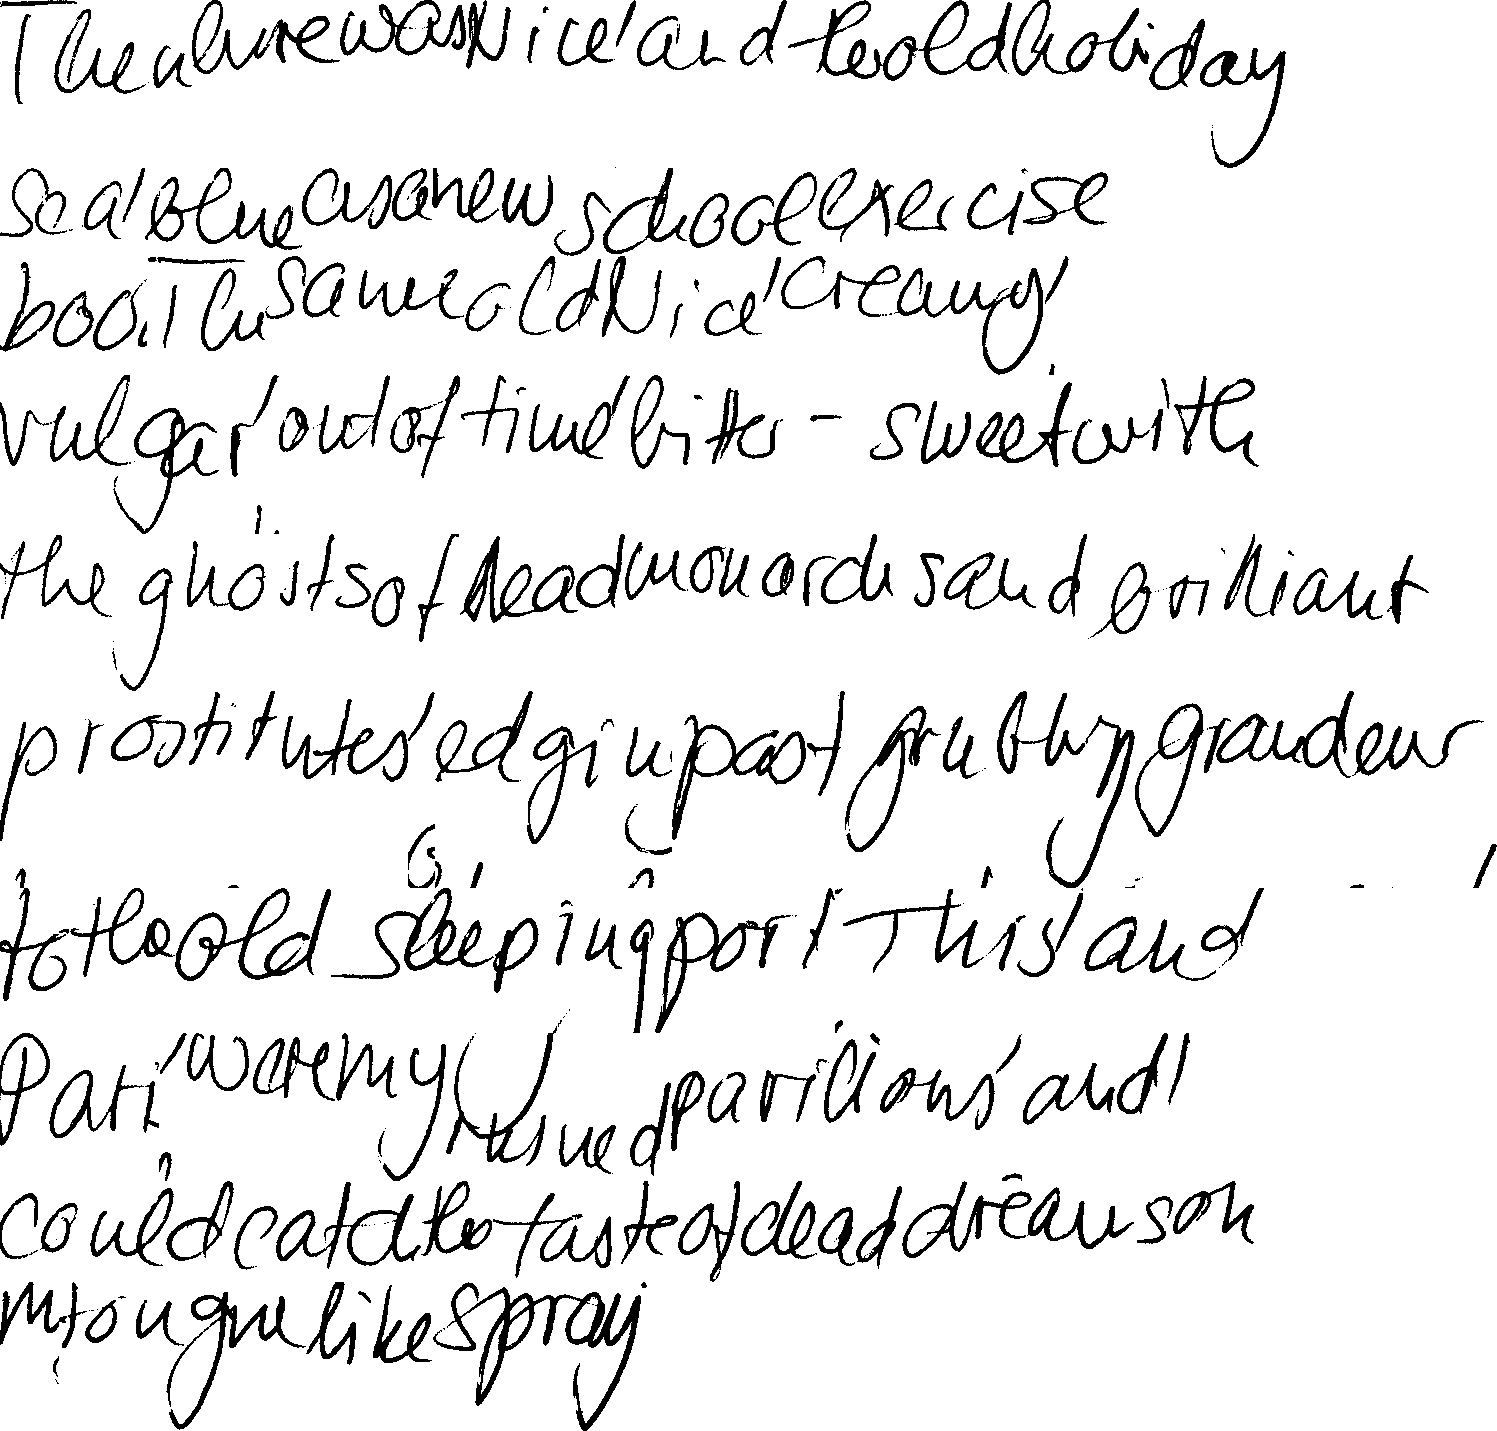 Then there was Nice' and the old holiday
sea' blue as a new school exercise
boo. The same old Nice' creamy'
vulgar' out of time' bitter - sweet with
the ghosts of dead monarchs and brilliant
prostitutes' edging past grubby grandeur
to the old sleeping port This' and
Pari' were my ruined pavilions' and I
could catch the taste of dead dreams on
my tongue like spray